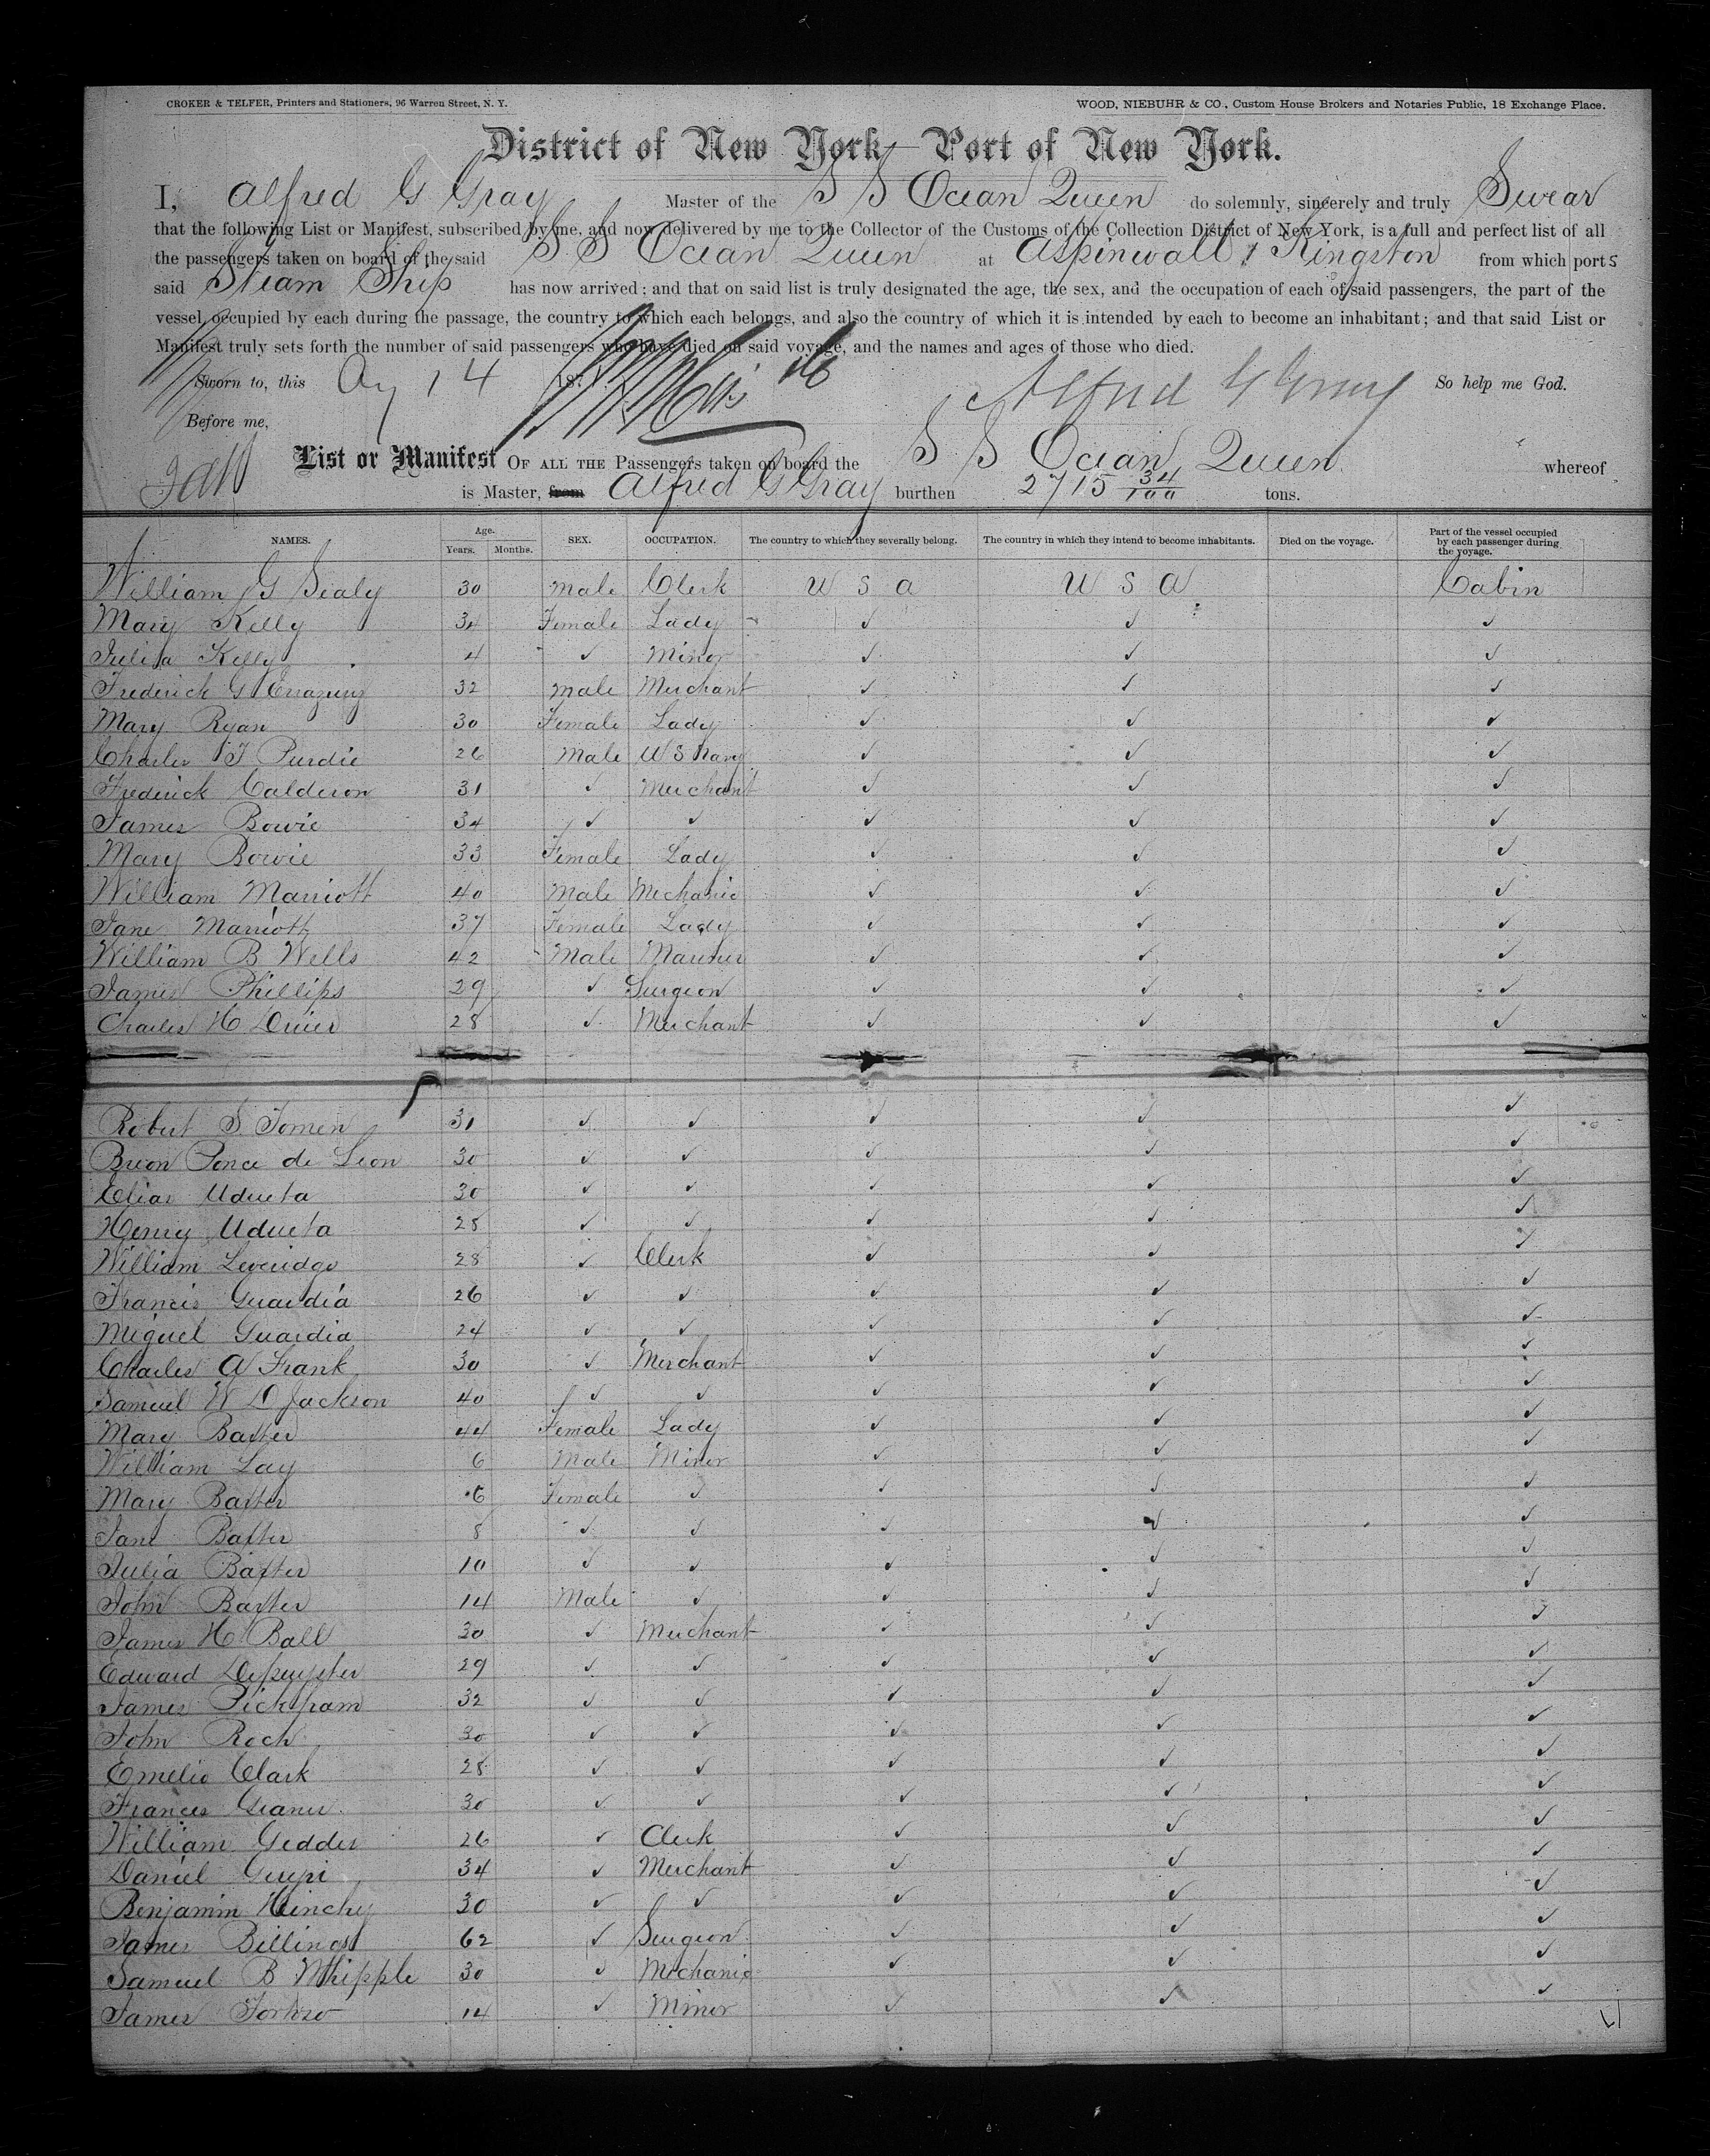 CROKER & TELFER, Printers and Stationers, 96 Warren Street, N. Y. WOOD, NIEBUHR & CO., Custom House Brokers and Notaries Public, 18 Exchange Place.
District of New York—Port of New York.
I, Alfred G Gray Master of the S S Ocean Queen do solemnly, sincerely and truly Swear
that the following List or Manifest, subscribed by me, and now delivered by me to the Collector of the Customs of the Collection District of New York, is a full and perfect list of all
the passengers taken on board of the said S S Ocean Queen at Aspinwall & Kingston from which ports
said Steam Ship has now arrived: and that on said list is truly designated the age, the sex, and the occupation of each of said passengers, the part of the
vessel occupied by each during the passage, the country to which each belongs, and also the country of which it is intended by each to become an inhabitant; and that said List or
Manifest truly sets forth the number of said passengers who have died on said voyage, and the names and ages of those who died.
Sworn to, this Aug 14 187 Alfred G Gray So help me God.
Before me,
List or Manifest OF ALL THE Passengers taken on board the S S Ocean Queen whereof
is Master, from Alfred G Gray burthen 2715 34/100 tons.
NAMES. Age. Years. Months. SEX. OCCUPATION. The country to which they severally belong. The country in which they intend to become inhabitants. Died on the voyage. Part of the vessel occupied by each passenger during the voyage.
William G Sealy 30 Male Clerk U S A U S A Cabin
Mary Kelly 34 Female Lady ✓ ✓ ✓
Julia Kelly 4 ✓ Minor ✓ ✓ ✓
Frederick G Errazuriz 32 Male Merchant ✓ ✓ ✓
Mary Ryan 30 Female Lady ✓ ✓ ✓
Charles T Purdie 26 Male U S Navy ✓ ✓ ✓
Frederick Calderon 31 ✓ Merchant ✓ ✓ ✓
James Bowie 34 ✓ ✓ ✓ ✓ ✓
Mary Bowie 33 Female Lady ✓ ✓ ✓
William Marriott 40 Male Mechanic ✓ ✓ ✓
Jane Marriott 37 Female Lady ✓ ✓ ✓
William B Wells 42 Male Mariner ✓ ✓ ✓
James Phillips 29 ✓ Surgeon ✓ ✓ ✓
Charles H 28 ✓ Merchant ✓ ✓ ✓
Robert S. Tomen 31 ✓ ✓ ✓ ✓ ✓
Ponce de Leon 30 ✓ ✓ ✓ ✓ ✓
Elias Udueta 30 ✓ ✓ ✓ ✓ ✓
Henry Udueta 28 ✓ ✓ ✓ ✓ ✓
William Leveridge 28 ✓ Clerk ✓ ✓ ✓
Francis Guardia 26 ✓ ✓ ✓ ✓ ✓
Miguel Guardia 24 ✓ ✓ ✓ ✓ ✓
Charles A Frank 30 ✓ Merchant ✓ ✓ ✓
Samuel W D Jackson 40 ✓ ✓ ✓ ✓ ✓
Mary Baxter 44 Female Lady ✓ ✓ ✓
William Lay 6 Male Minor ✓ ✓ ✓
Mary Baxter 6 Female ✓ ✓ ✓ ✓
Jane Baxter 8 ✓ ✓ ✓ ✓ ✓
Julia Baxter 10 ✓ ✓ ✓ ✓ ✓
John Baxter 14 Male ✓ ✓ ✓ ✓
James H Ball 30 ✓ Merchant ✓ ✓ ✓
Edward Depuyster 29 ✓ ✓ ✓ ✓ ✓
James Pickham 32 ✓ ✓ ✓ ✓ ✓
John Roch 30 ✓ ✓ ✓ ✓ ✓
Emelio Clark 28 ✓ ✓ ✓ ✓ ✓
Frances 30 ✓ ✓ ✓ ✓ ✓
William Geddes 26 ✓ Clerk ✓ ✓ ✓
Daniel 34 ✓ Merchant ✓ ✓ ✓
Benjamin Hinchy 30 ✓ ✓ ✓ ✓ ✓
James Billings 62 ✓ Surgeon ✓ ✓ ✓
Samuel B Whipple 30 ✓ Mechanic ✓ ✓ ✓
James 14 ✓ Minor ✓ ✓ ✓